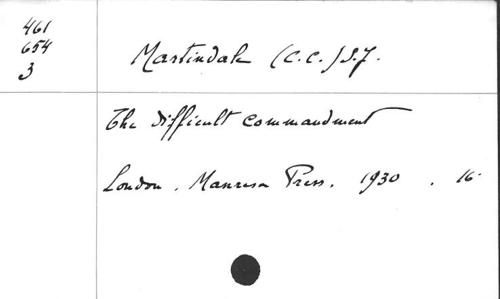 461
654
3
Martindale (C.C.) S.J.
The difficult commandment
London . Manresa Press . 1930 . 16